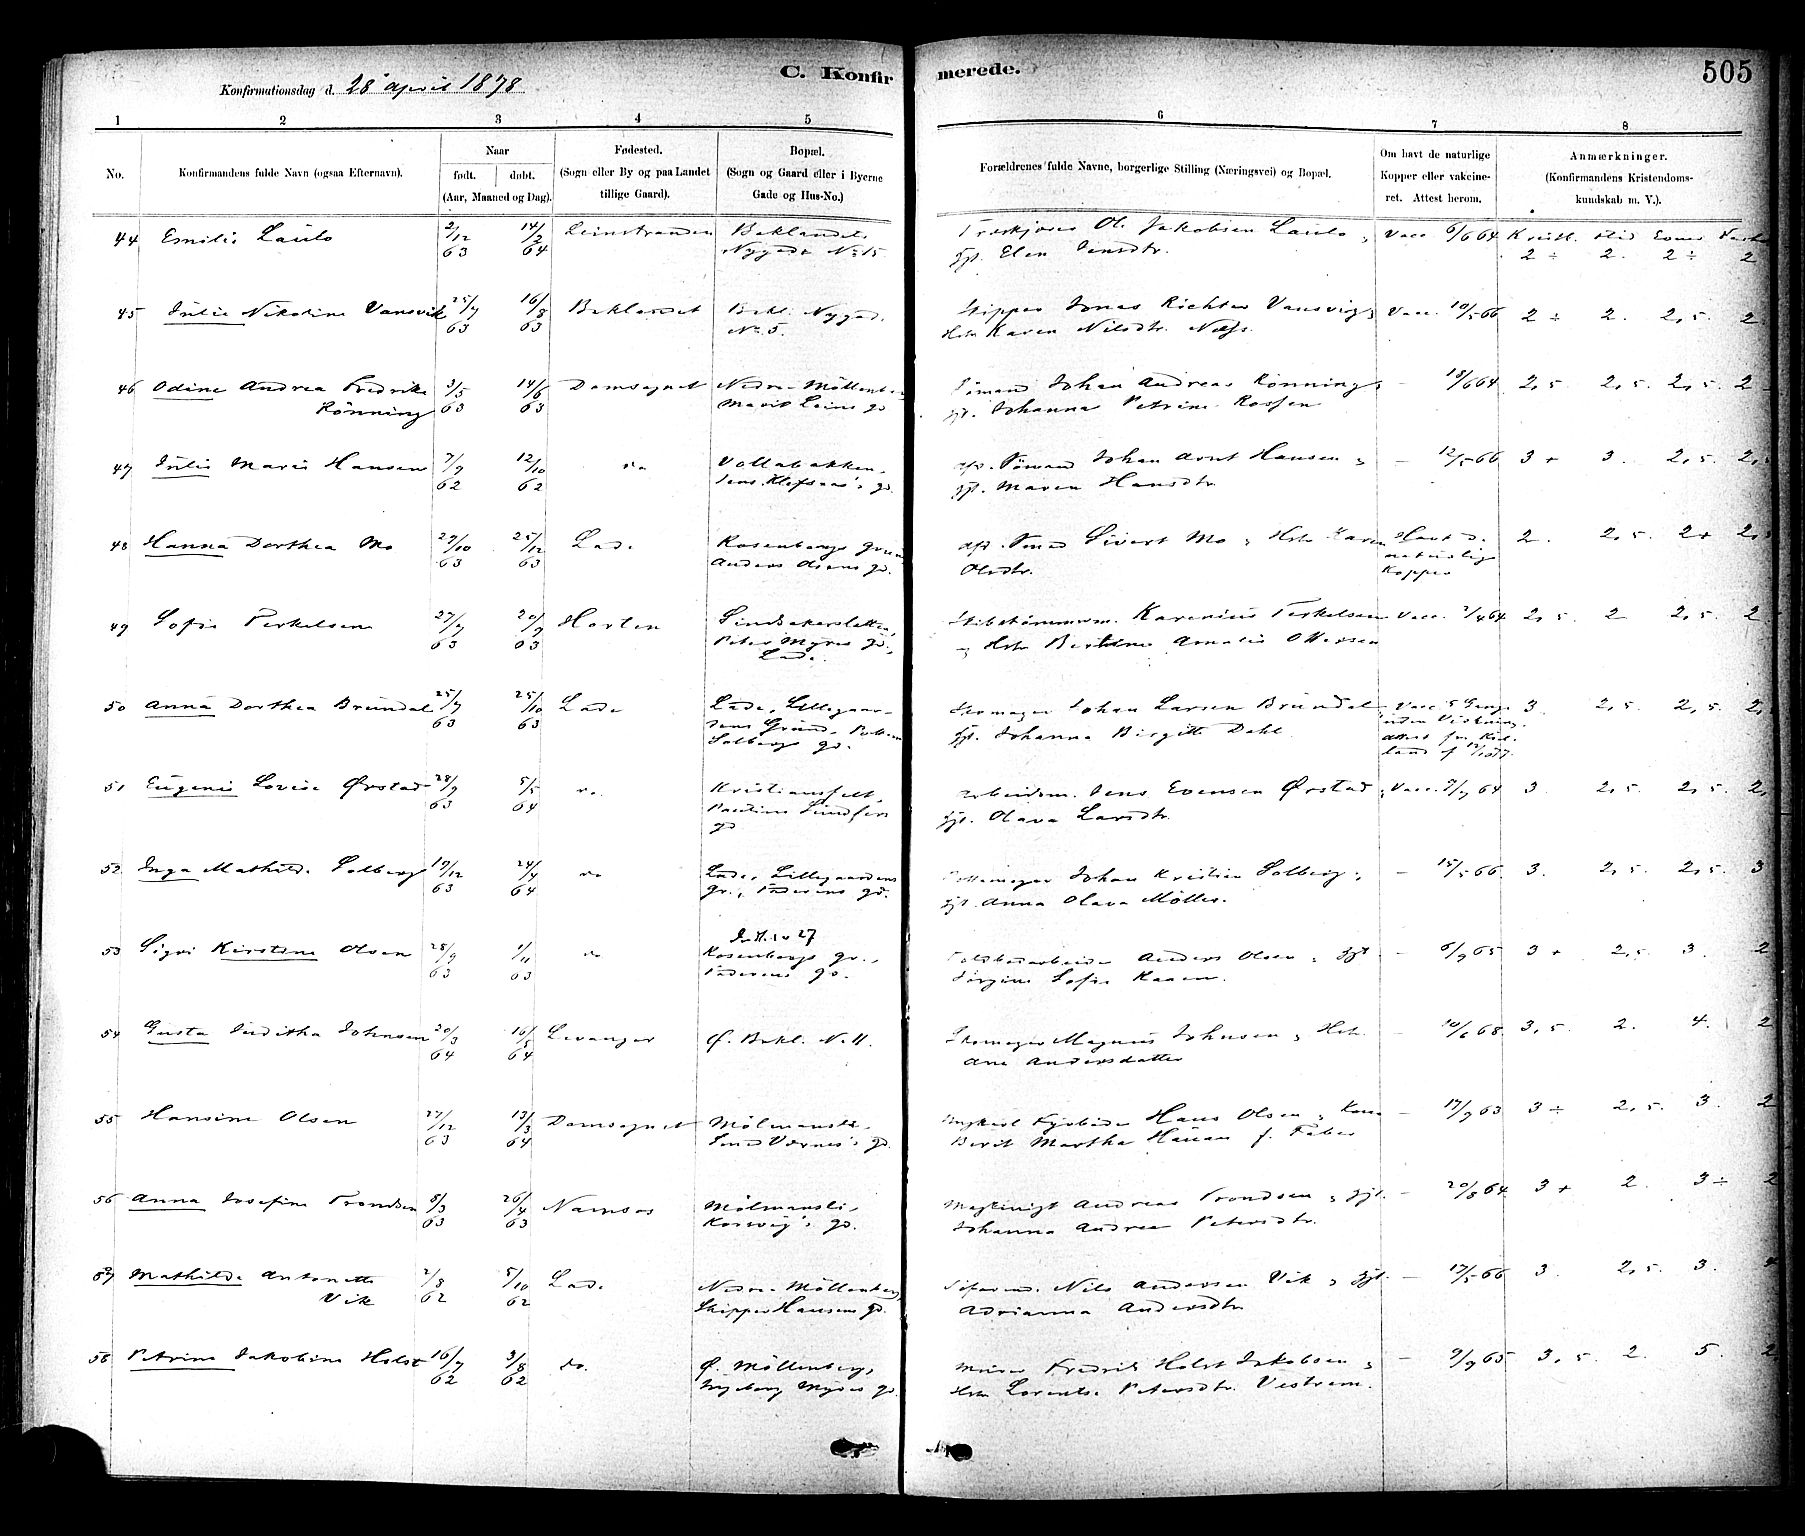 C. Konfirmerede.
505
Konfirmationsdag d. 28 april 1878
1 2 3 4 5 6 7 8
No.
Konfirmandens fulde Navn (ogsaa Efternavn).
Naar
født. døbt.
(Aar, Maaned og Dag).
Fødested.
(Sogn eller By og paa Landet
tillige Gaard).
Bopæl.
(Sogn og Gaard eller i Byerne
Gade og Hus-No.)
Forældrenes fulde Navne, borgerlige Stilling (Næringsvei) og Bopæl.
Om havt de naturlige
Kopper eller vakcine-
ret. Attest herom.
Anmærkninger.
(Konfirmandens Kristendoms-
kundskab m. V.).
44 Emilie Laulo 2/12 63 14/2 64 Leinstranden Baklandet
Nygade No 15
Ol. Jakobsen Laulo
Elen Jensdtr. Vacc. 6/6 64 2 ÷ 2. 2 ÷ 2
45 Julie Nikoline Vansvik 25/7 63 16/8 63 Baklandet Bakl. Nygad.
No 5.
Skipper Jonas Richter Vansvig
Hst. Karen Nilsdtr. Næss. Vacc. 10/5 66 2 ÷ 2. 2,5. 2
46 Odine Andrea Fredrikke
Rönning 3/5 63 14/6 63 Domsognet Nedre Möllenb
Johan Andreas Rönning
gft. Johanna Petrine Rossen — 18/6 64 2,5 2,5. 2,5. 2
47 Julie Marie Hansen 7/9 62 12/10 62 do Vollabakken.
Johan Arnt Hansen
gft. Maren Hansdtr. — 12/5 66 3 + 3. 2,5. 2,5
48 Hanna Dorthea Mo 27/10 63 25/12 63 Lade Rosenborgs
Anders Olsens gd.
Sivert Mo Hst. Karen
Olsdtr. Havt d.
naturlige
Kopper 2. 2,5. 2 + 2,5
49 Sofie Terkelsen 27/7 63 20/9 63 Horten
Peter Myres gd.,
Lade.
Karenius Terkelsen
Hst. Amalie Ottessen Vacc. 2/4 64 2,5. 2 2,5. 2
50 Anna Dorthea Brundal 25/7 63 25/10 63 Lade Lade, Lillegaar-
dens Grund,
Solbergs gd.
Skomager Johan Larsen Brundal
gft. Johanna Birgitte Dahl Vacc. 5 Gange
uden Virkning, 3. 2,5. 2,5. 2,
51 Eugenie Lovise Ørstad 28/9 63 5/5 64 do. Kristiansfelt,
gd
Arbeidsm. Jens Evensen Ørstad
gft. Olava Larsdtr. Vacc. 9/7 64 3. 2,5. 2,5. 2,
52 Inga Mathilde Solberg 19/12 63 24/4 64 do Lade, Lillegaardens
gr., Faderens gd.
Pottemager Johan Kristian Solberg
gft. Anna Olava Möller. — 15/5 66. 3. 2,5. 2,5. 3
53 Sigri Kirstine Olsen 28/9 63 1/11 63 do
Rosenborgs gr.,
Faderens gd.
Anders Olsen gft.
Jörgine Sofie Kaaen. — 6/9 65 3 + 2,5. 3. 2
54 Gusta Juditha Johnsen 20/3 64 16/5 64 Levanger Ø. Bakl. No 11.
Skomager Magnus Johnsen Hst.
Ane Andersdatter — 10/6 68. 3,5. 2. 4. 2
55 Hansine Olsen 27/12 63 13/3 64 Domsognet Mölmansli
Hans Olsen Kone
Berit Martha f. Faber — 17/9 63 3 ÷ 2,5. 3. 2
56 Anna Josefine Trondsen 5/3 63 26/4 63 Namsos Mölmansli,
gd.
Andreas Trondsen gft.
Johanna Andrea Petersdtr. — 20/8 64 3 + 2. 3 ÷ 2
57 Mathilde Antonette
Vik 2/8 62 5/10 62 Lade Nedre Möllenberg
Skipper Hansens gd.
Nils Andersen Vik gft.
Adrianna Andersdtr. — 17/5 66 3. 2,5. 3. 4
58 Petrine Jakobine Holst 16/7 62 3/8 62 do. Ø. Möllenberg,
Ingeborg gd.
Murer Fredrik Holst Jakobsen
Hst. Lorentse Petersdtr. Vestrem. — 9/9 65 3,5. 2. 5. 2